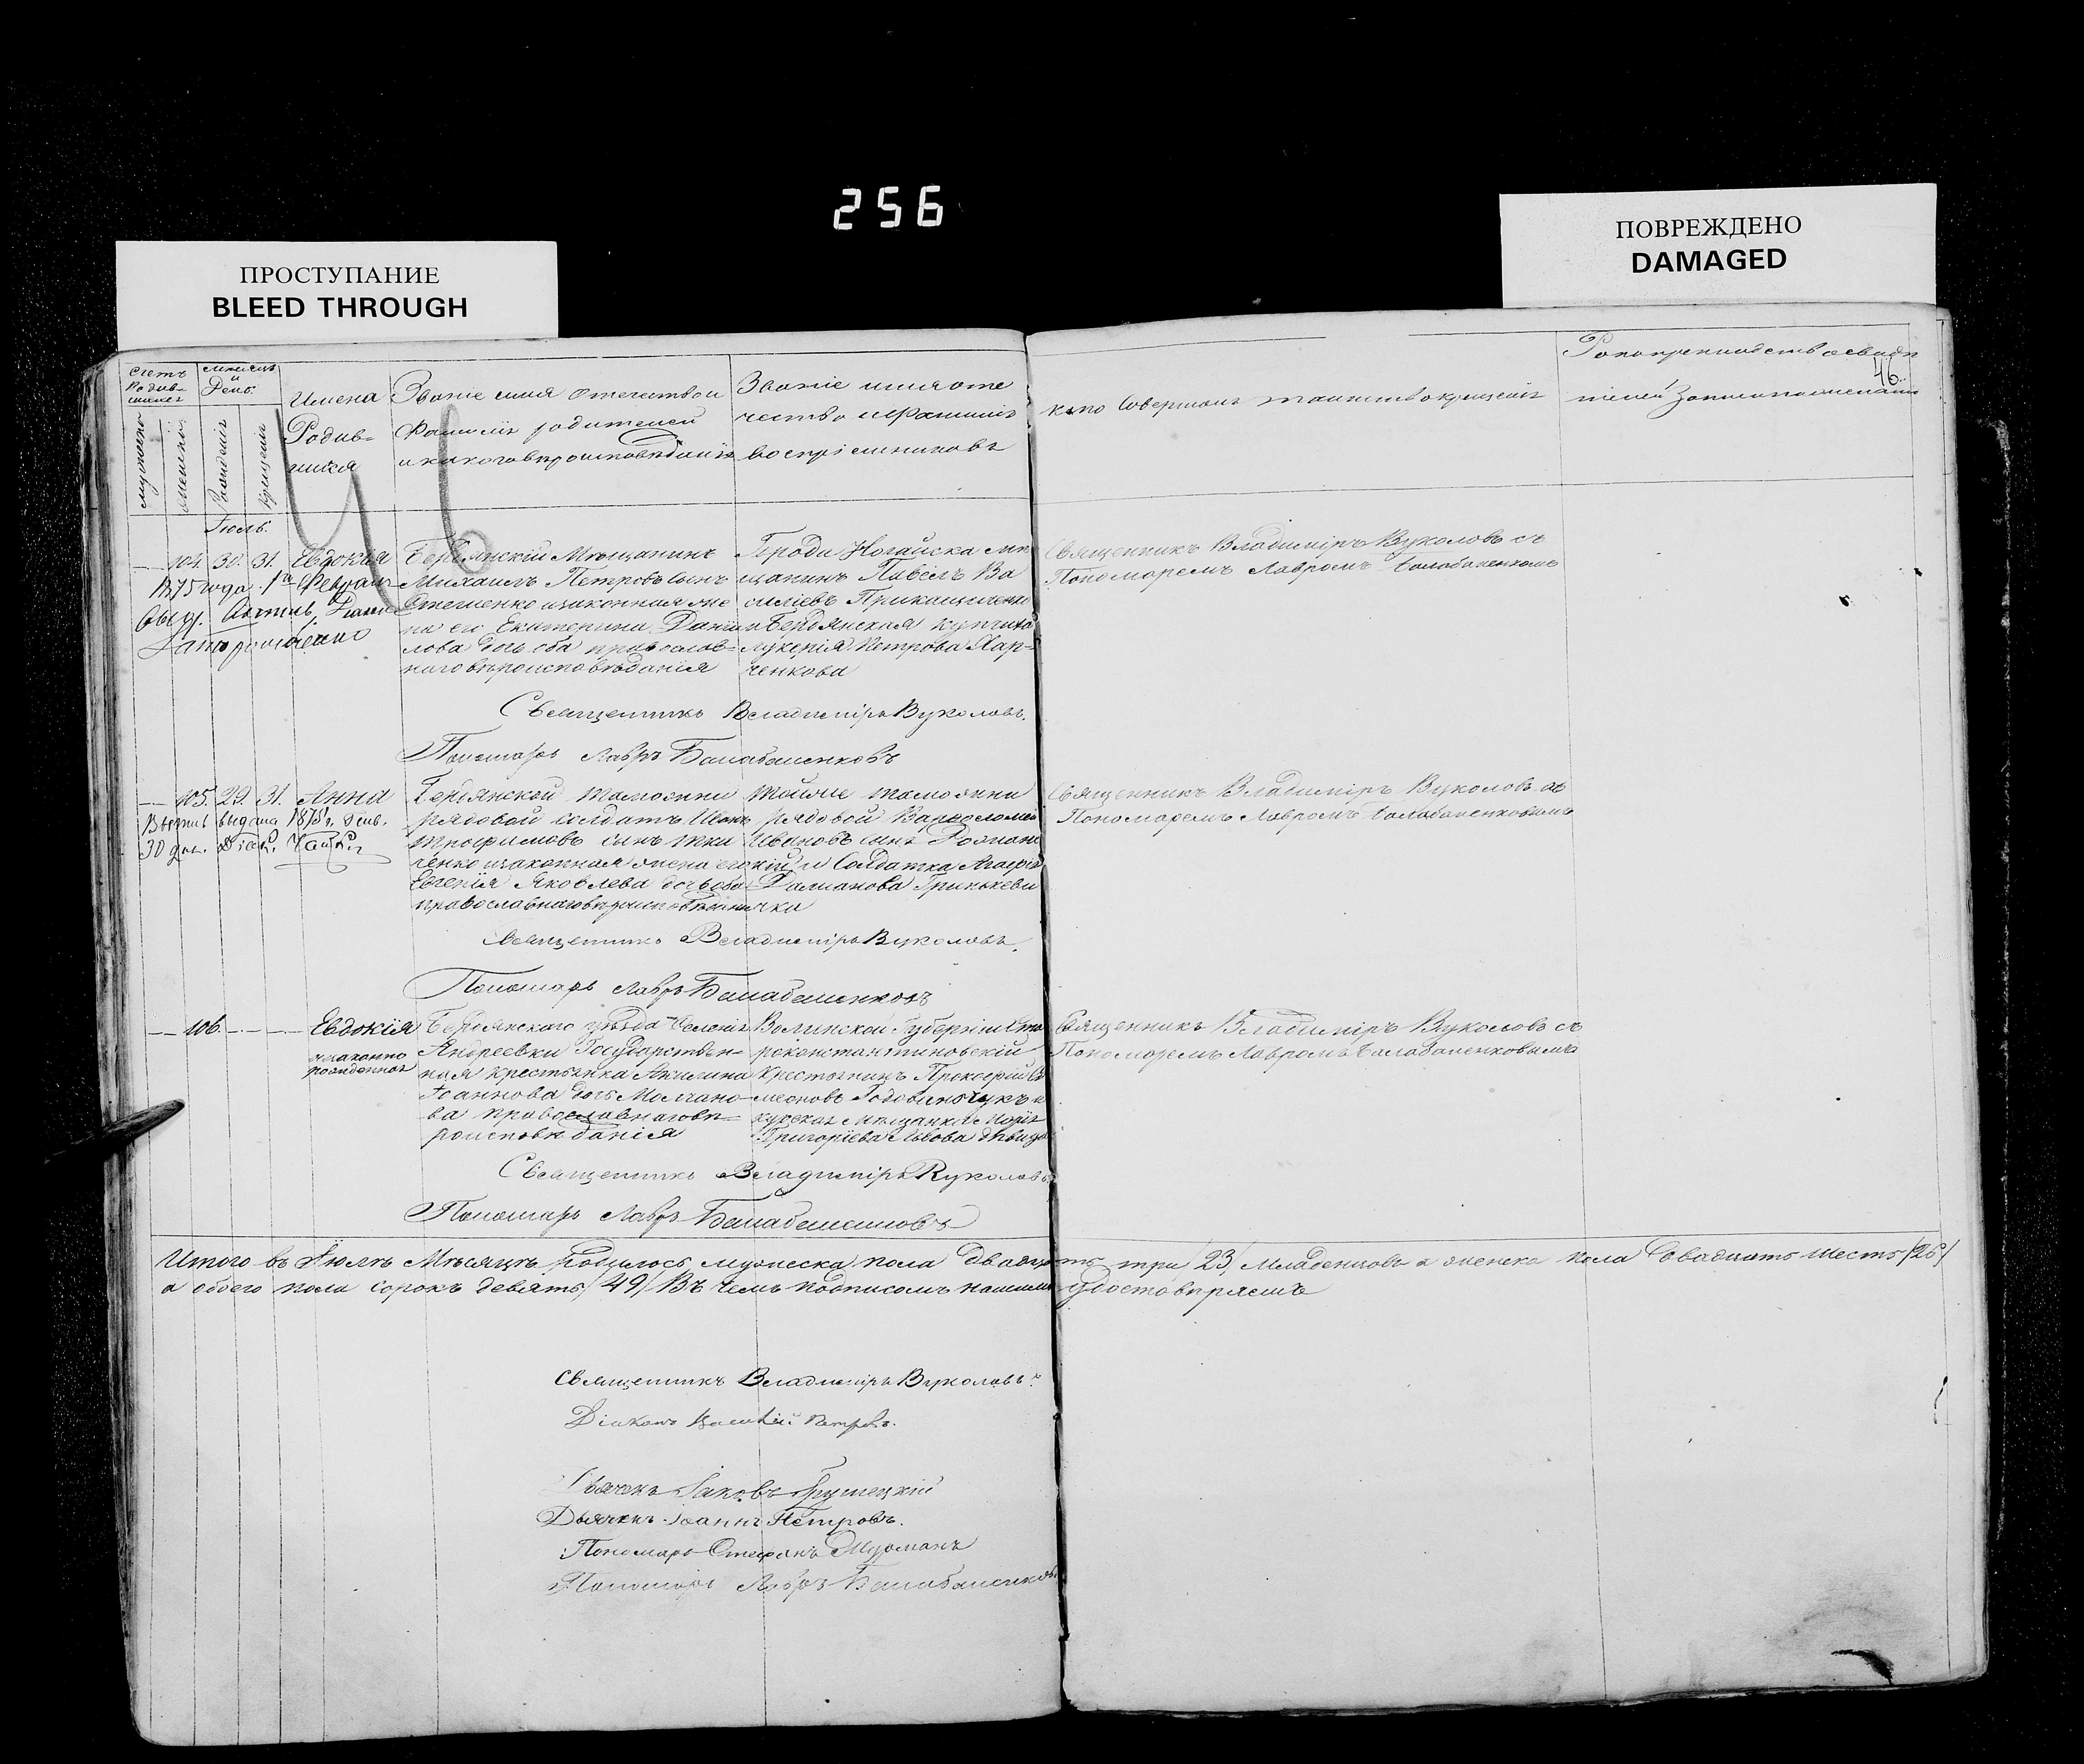 256
ПРОСТУПАНИЕ
BLEED THROUGH
ПОВРЕЖДЕНО
DAMAGED
46.
Счетъ Родив-шихся
Мѣсяцъ и День.
мужеска
женска
Рожденія
Крещенія
Имена
Родив-
шихся
Званіе имя отечество и
Фамилія родителей
и какого вѣроисповѣданія
Званіе имя оте
чество и фамилія
воспріемниковъ
кто совершалъ таинство крещенія
Рукоприкладство свидѣ
телей записи по желанію
46
Іюль.
104. 30. 31. Евдокія
1875 года 1го Февраля
Бердянскій Мѣщанинъ
Михаилъ Петровъ сынъ
Стешенко и законная же
на его Екатерина Даніи
лова дочь оба православ=
наго вѣроисповѣданія
Города Ногайска мѣ
щанинъ Павелъ Ва
силіевъ
и Бердянская купчиха
Лукерія Петрова Хар=
ченкова
Священникъ Владиміръ Вуколовъ съ
Пономоремъ Лавромъ Балабаненковымъ
Священникъ Владиміръ Вуколовъ.
Пономарь Лавръ Балабаненковъ
105. 29. 31. Анна
30 дня.
Бердянской таможни
рядовой солдатъ Иванъ
Трофимовъ сынъ Тка
ченко и законная жена его
Евгенія Яковлева дочь оба
православнаго вѣроисповѣданія
тойже таможни
рядовой Варфоломей
Ивановъ сынъ
и Солдатка Агафія
Даміанова Гринкеви
чка
Священникъ Владиміръ Вуколовъ съ
Пономоремъ Лавромъ Балабаненковымъ
Священникъ Владиміръ Вуколовъ.
Пономарь Лавръ Балабаненковъ
106. Евдокія
незаконно
рожденная
Бердянского уѣзда Селенія
Андреевки Государствен=
ная крестьянка Акилина
Іоаннова дочь Молчано=
ва православнаго вѣ=
роисповѣданія
Волинской Губерніи Ста
роконстантиновскій
Крестьянинъ Прокофій Си
меоновъ Годованючукъ и
курская мѣщанка Марія
Григоріева Львова дѣвица
Священникъ Владиміръ Вуколовъ съ
Пономоремъ Лавромъ Балабаненковымъ
Священникъ Владиміръ Вуколовъ
Пономарь Лавръ Балабаненковъ
Итого въ Іюлѣ Мѣсяцѣ родилось мужеска пола двадцать три /23/ младенцовъ а женска пола двадцать шесть /26/
а обоего пола сорокъ девять /49/ Въ чемъ подписомъ нашимъ удостовѣряемъ
Священникъ Владиміръ Вуколовъ.
Діаконъ Василій Петровъ.
Дьячекъ Іаковъ Грушецкій
Дьячекъ Іоаннъ Петровъ.
Пономарь Стефанъ
Пономарь Лавръ Балабаненковъ